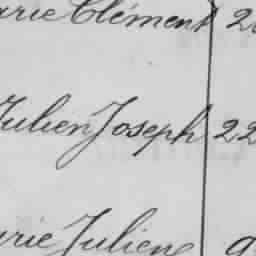 arie Clément 2
Julien Joseph 22
arie Julien 9